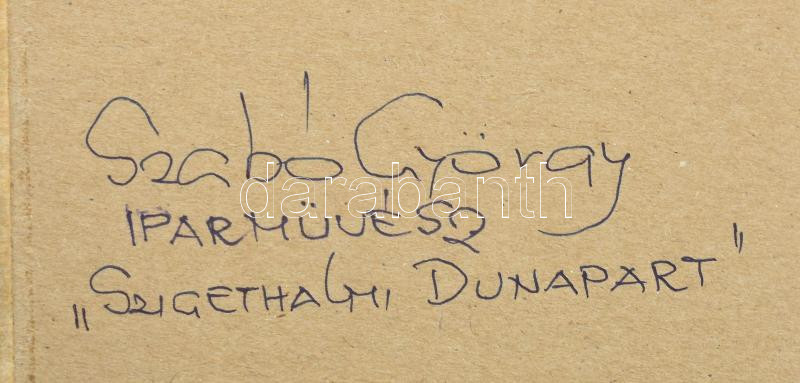 Szabó György
darabanth
IPARMŰVÉSZ
„SZIGETHALMI DUNAPART"